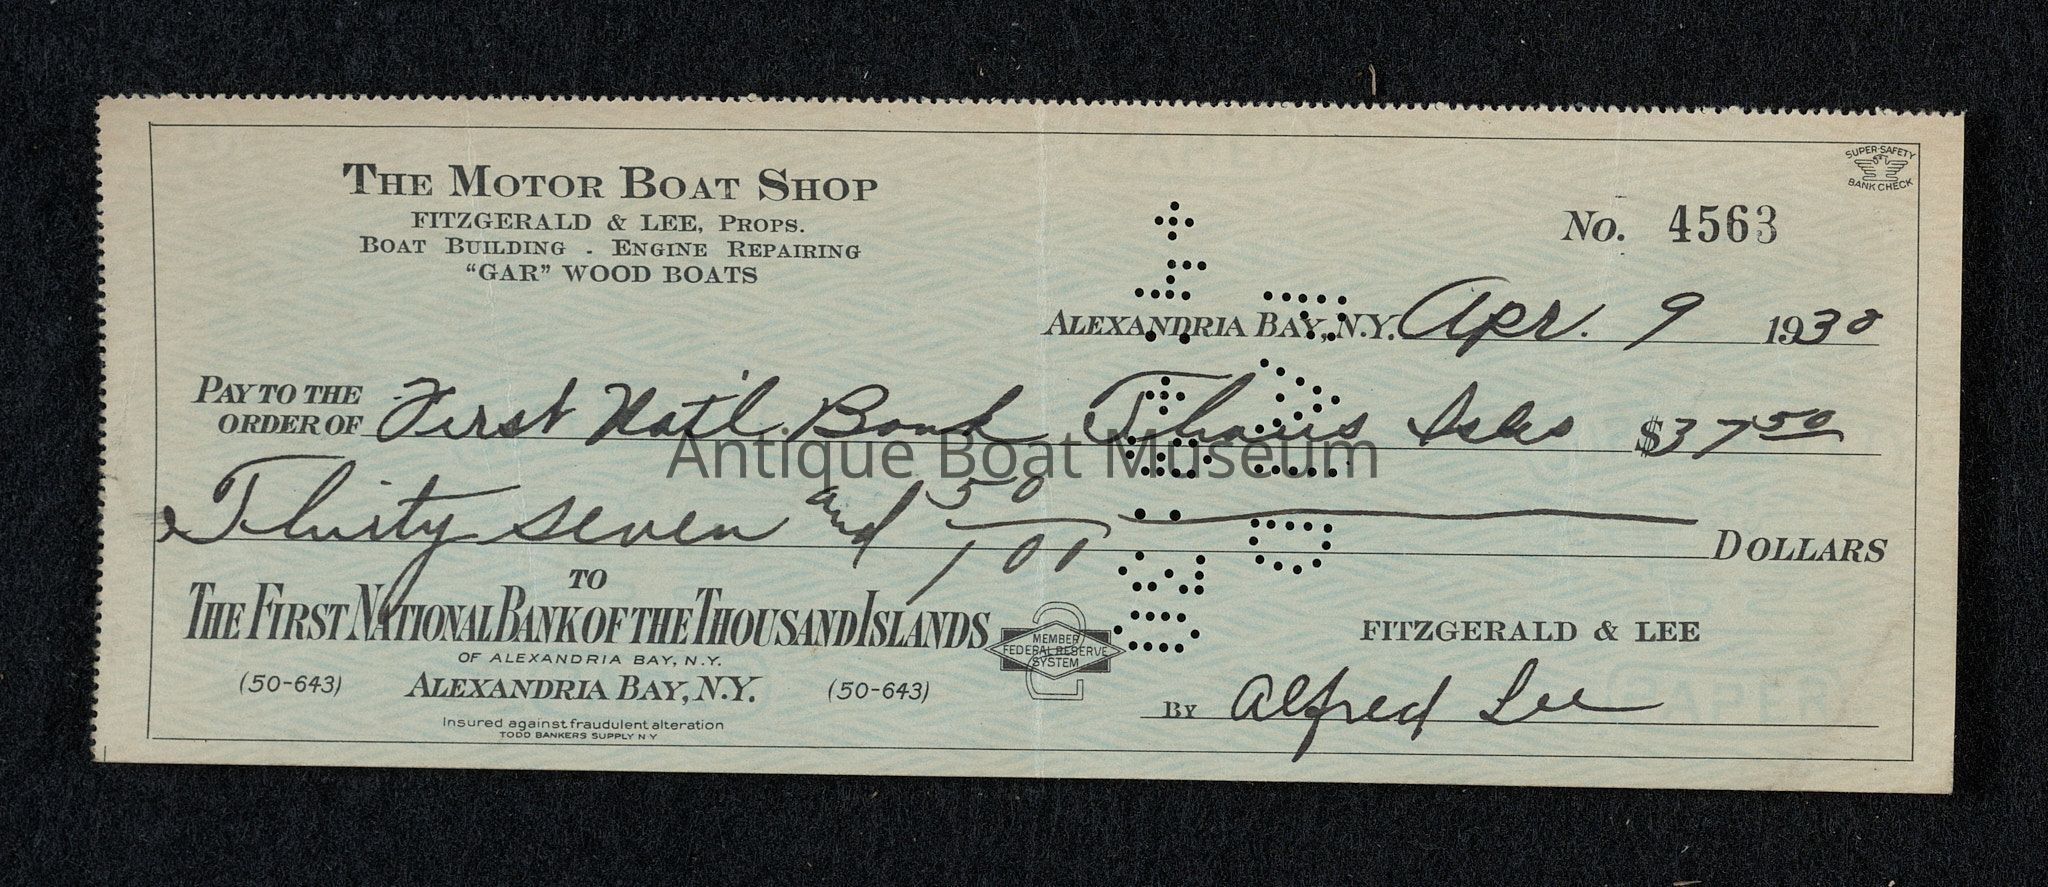 SUPER-SAFETY
BANK CHECK
THE MOTOR BOAT SHOP
FITZGERALD & LEE, PROPS.
BOAT BUILDING - ENGINE REPAIRING
"GAR" WOOD BOATS
No. 4563
ALEXANDRIA BAY, N.Y. Apr. 9 1930
PAY TO THE
ORDER OF First Nat'l Bank Thous Isles $37 50
Antique Boat Museum
Thirty seven and 50/100 DOLLARS
TO
THE FIRST NATIONAL BANK OF THE THOUSAND ISLANDS
OF ALEXANDRIA BAY, N.Y.
(50-643) ALEXANDRIA BAY, N.Y. (50-643)
Insured against fraudulent alteration
TODD BANKERS SUPPLY N Y
MEMBER
FEDERAL RESERVE
SYSTEM
2
FITZGERALD & LEE
BY Alfred Lee